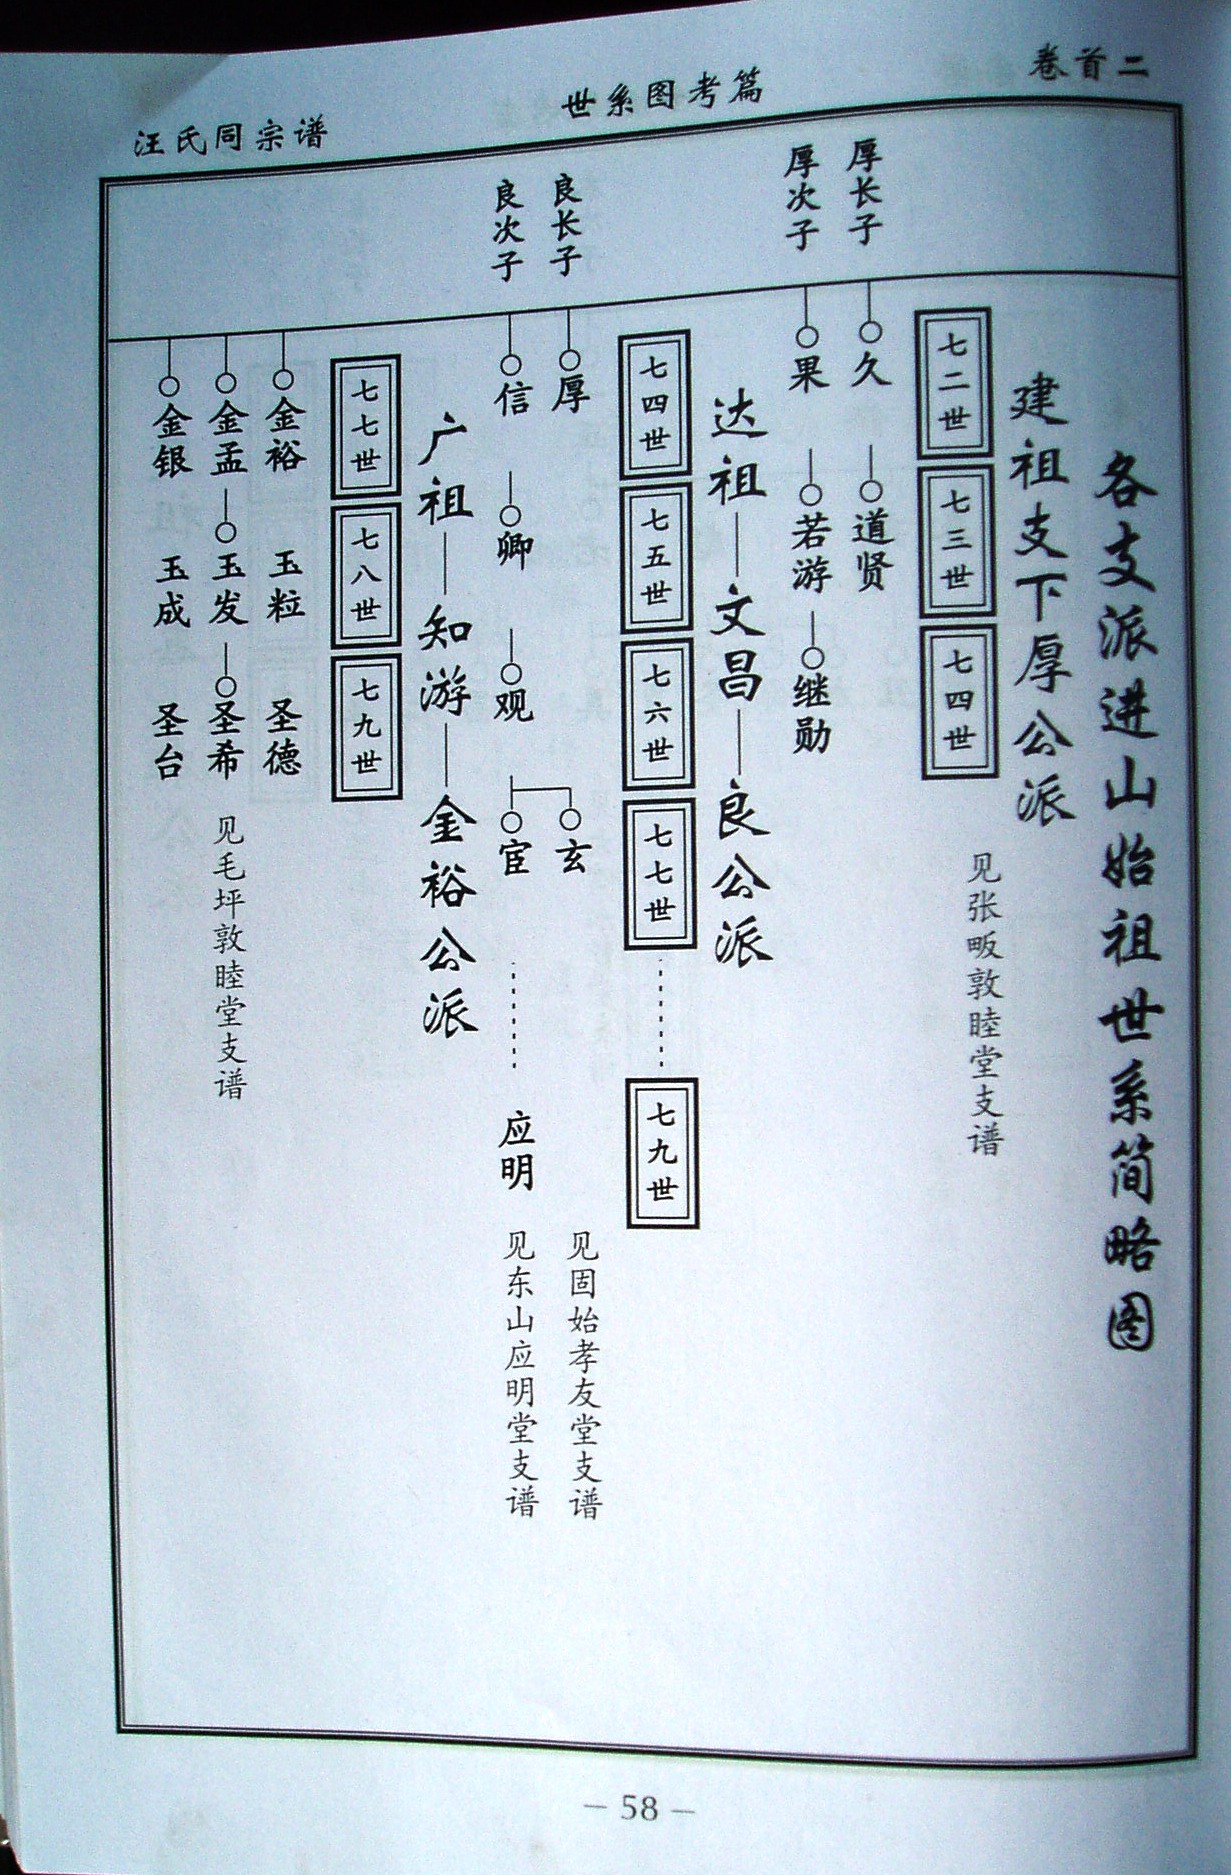 汪氏同宗谱
世系图考篇
卷首二
各支派进山始祖世系简略图
建祖支下厚公派
七二世
七三世
七四世
见张畈敦睦堂支谱
厚长子
久
道贤
厚次子
果
若游
继勋
达祖—文昌—良公派
七四世
七五世
七六世
七七世
七九世
良长子
厚
玄
见固始孝友堂支谱
良次子
信
卿
观
宦
应明
见东山应明堂支谱
广祖—知游—金裕公派
七七世
七八世
七九世
金裕
玉粒
圣德
金孟
玉发
圣希
见毛坪敦睦堂支谱
金银
玉成
圣台
— 58 —